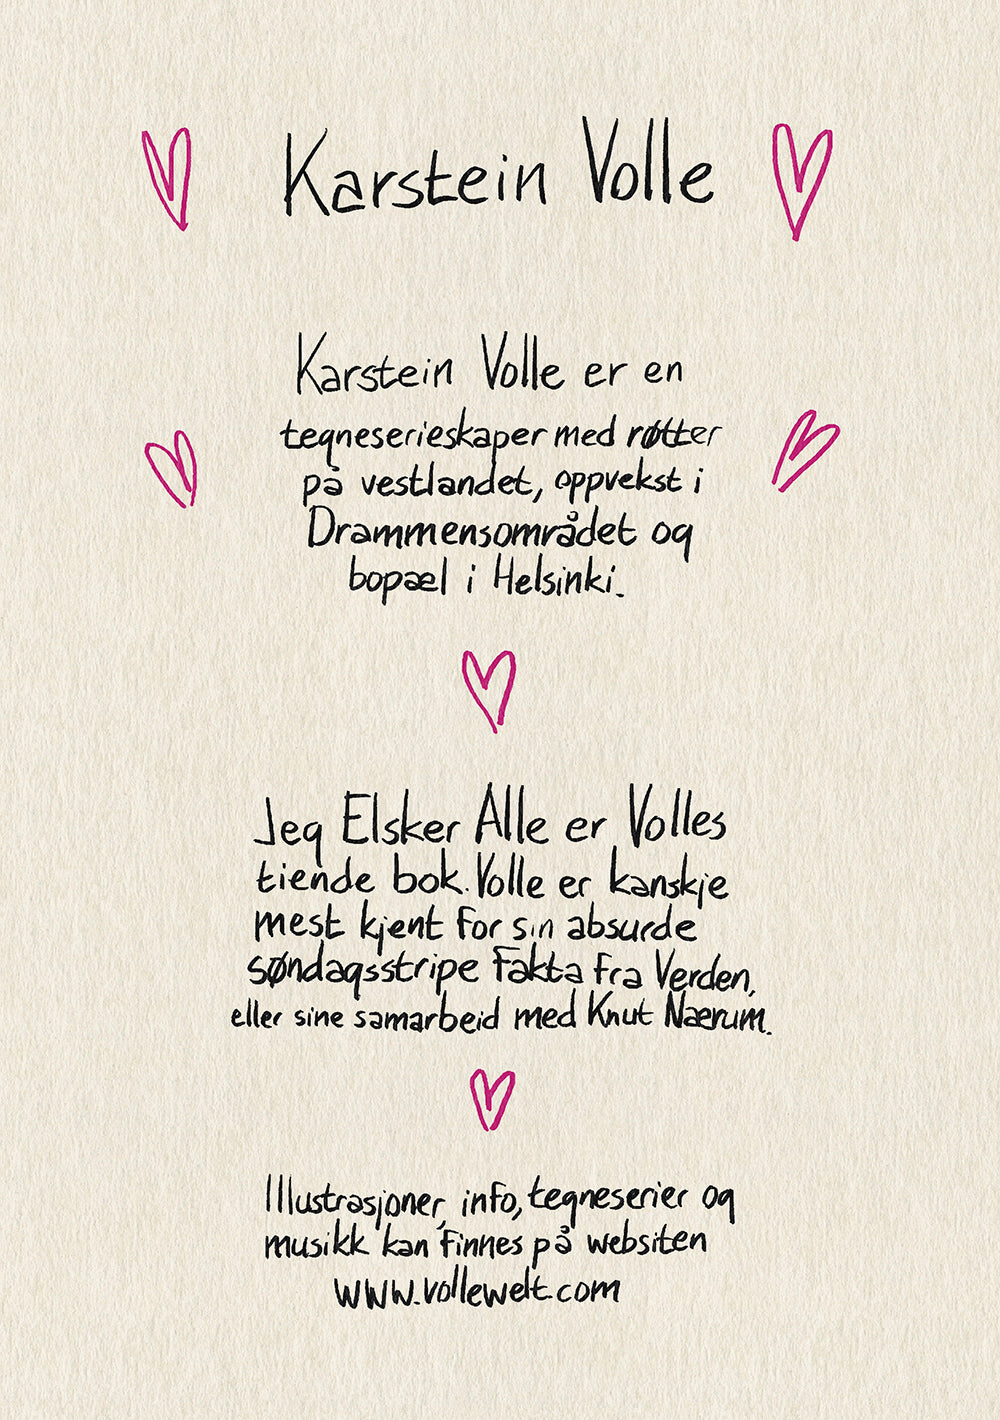 Karstein Volle
Karstein Volle er en
tegneserieskaper med røtter
på vestlandet, oppvekst i
Drammensområdet og
bopæl i Helsinki.
Jeg Elsker Alle er Volles
tiende bok. Volle er kanskje
mest kjent for sin absurde
søndagsstripe Fakta fra Verden,
eller sine samarbeid med Knut Nærum.
Illustrasjoner, info, tegneserier og
musikk kan finnes på websiten
www.vollewelt.com